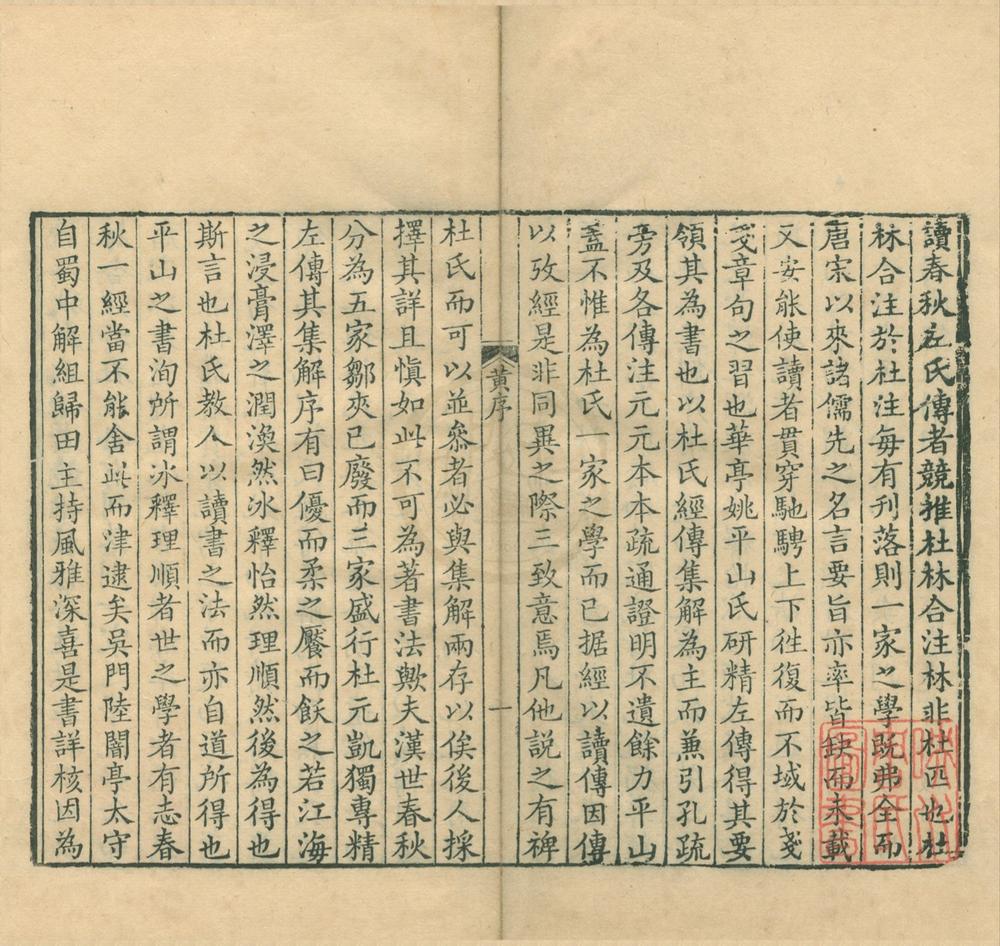 讀春秋左氏傳者競推杜林合注林非杜匹也杜
林合注於杜注每有刊落則一家之學既弗全而
唐宋以來諸儒先之名言要旨亦率皆缺而未載
又安能使讀者貫穿馳騁上下徃復而不域於戔
戔章句之習也華亭姚平山氏研精左傳得其要
領其為書也以杜氏經傳集解為主而兼引孔疏
旁及各傳注元元本本疏通證明不遺餘力平山
葢不惟為杜氏一家之學而已据經以讀傳因傳
以攷經是非同異之際三致意焉凡他説之有裨
黄序
一
杜氏而可以並叅者必與集解兩存以俟後人採
擇其詳且愼如此不可為著書法歟夫漢世春秋
分為五家鄒夾已廢而三家盛行杜元凱獨專精
左傳其集解序有曰優而柔之饜而飫之若江海
之浸膏澤之潤渙然冰釋怡然理順然後為得也
斯言也杜氏教人以讀書之法而亦自道所得也
平山之書洵所謂冰釋理順者世之學者有志春
秋一經當不能舍此而津逮矣吳門陸闇亭太守
自蜀中解組歸田主持風雅深喜是書詳核因為